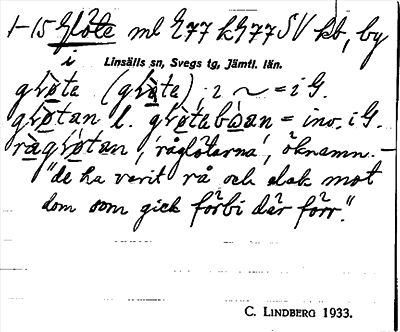 1-15 Glöte ml E77 k G77 SV kb, by
i Linsälls sn, Svegs tg, Jämtl. län.
głöte (głöte) : i ~ = i G.
głötan l. głötebòan = inv. i G.
rågłötan, 'råglötarna', öknamn. –
"de ha varit rå och elak mot
dom som gick förbi där förr."
C. LINDBERG 1933.